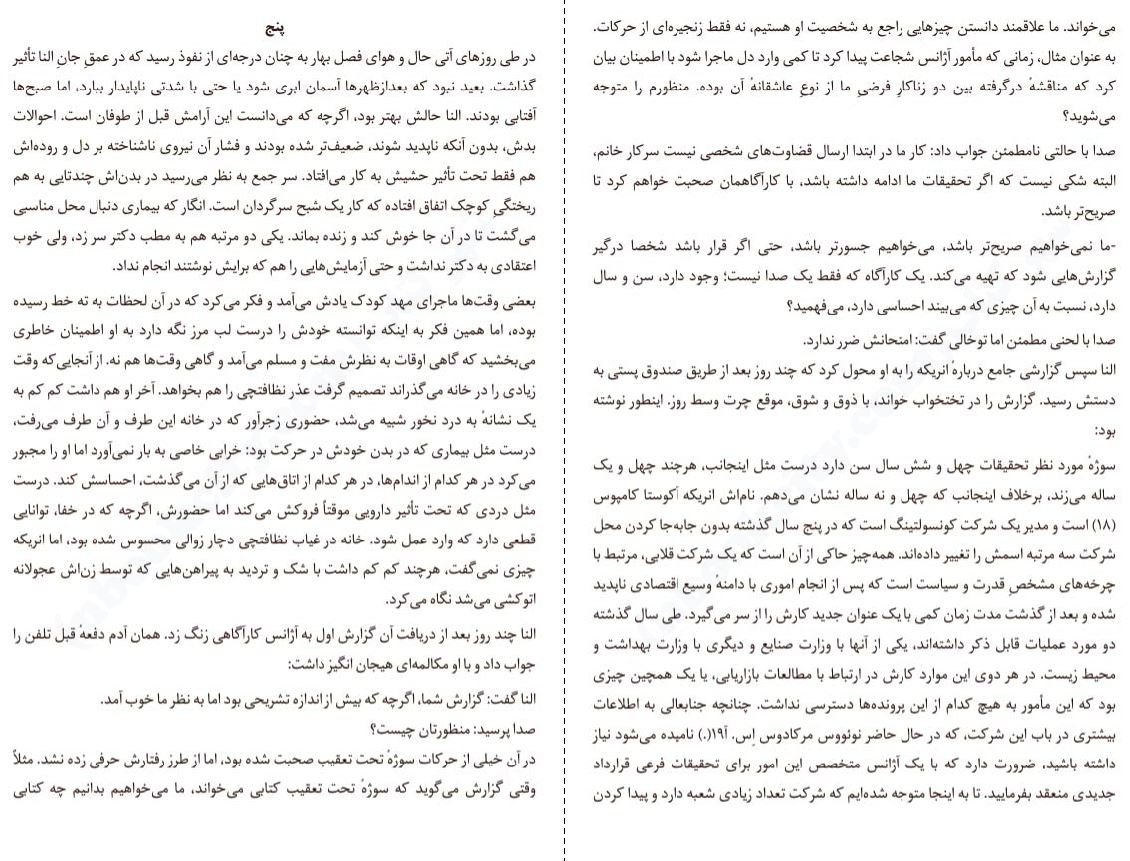 پنج
در طی روزهای آتی حال و هوای فصل بهار به چنان درجه‌ای از نفوذ رسید که در عمق جانِ النا تأثیر
گذاشت. بعید نبود که بعدازظهرها آسمان ابری شود یا حتی با شدتی ناپایدار ببارد، اما صبح‌ها
آفتابی بودند. النا حالش بهتر بود، اگرچه که می‌دانست این آرامش قبل از طوفان است. احوالات
بدش، بدون آنکه ناپدید شوند، ضعیف‌تر شده بودند و فشار آن نیروی ناشناخته بر دل و روده‌اش
هم فقط تحت تأثیر حشیش به کار می‌افتاد. سر جمع به نظر می‌رسید در بدن‌اش چندتایی به هم
ریختگیِ کوچک اتفاق افتاده که کار یک شبح سرگردان است. انگار که بیماری دنبال محل مناسبی
می‌گشت تا در آن جا خوش کند و زنده بماند. یکی دو مرتبه هم به مطب دکتر سر زد، ولی خوب
اعتقادی به دکتر نداشت و حتی آزمایش‌هایی را هم که برایش نوشتند انجام نداد.
بعضی وقت‌ها ماجرای مهد کودک یادش می‌آمد و فکر می‌کرد که در آن لحظات به ته خط رسیده
بوده، اما همین فکر به اینکه توانسته خودش را درست لب مرز نگه دارد به او اطمینان خاطری
می‌بخشید که گاهی اوقات به نظرش مفت و مسلم می‌آمد و گاهی وقت‌ها هم نه. از آنجایی‌که وقت
زیادی را در خانه می‌گذراند تصمیم گرفت عذر نظافتچی را هم بخواهد. آخر او هم داشت کم کم به
یک نشانهٔ به درد نخور شبیه می‌شد، حضوری زجرآور که در خانه این طرف و آن طرف می‌رفت،
درست مثل بیماری که در بدن خودش در حرکت بود: خرابی خاصی به بار نمی‌آورد اما او را مجبور
می‌کرد در هر کدام از اندام‌ها، در هر کدام از اتاق‌هایی که از آن می‌گذشت، احساسش کند. درست
مثل دردی که تحت تأثیر دارویی موقتاً فروکش می‌کند اما حضورش، اگرچه که در خفا، توانایی
قطعی دارد که وارد عمل شود. خانه در غیاب نظافتچی دچار زوالی محسوس شده بود، اما انریکه
چیزی نمی‌گفت، هرچند کم کم داشت با شک و تردید به پیراهن‌هایی که توسط زن‌اش عجولانه
اتوکشی می‌شد نگاه می‌کرد.
النا چند روز بعد از دریافت آن گزارش اول به آژانس کارآگاهی زنگ زد. همان آدم دفعهٔ قبل تلفن را
جواب داد و با او مکالمه‌ای هیجان انگیز داشت:
النا گفت: گزارش شما، اگرچه که بیش از اندازه تشریحی بود اما به نظر ما خوب آمد.
صدا پرسید: منظورتان چیست؟
در آن خیلی از حرکات سوژهٔ تحت تعقیب صحبت شده بود، اما از طرز رفتارش حرفی زده نشد. مثلاً
وقتی گزارش می‌گوید که سوژهٔ تحت تعقیب کتابی می‌خواند، ما می‌خواهیم بدانیم چه کتابی
می‌خواند. ما علاقمند دانستن چیزهایی راجع به شخصیت او هستیم، نه فقط زنجیره‌ای از حرکات.
به عنوان مثال، زمانی که مأمور آژانس شجاعت پیدا کرد تا کمی وارد دل ماجرا شود با اطمینان بیان
کرد که مناقشهٔ درگرفته بین دو زناکارِ فرضیِ ما از نوعِ عاشقانهٔ آن بوده. منظورم را متوجه
می‌شوید؟
صدا با حالتی نامطمئن جواب داد: کار ما در ابتدا ارسال قضاوت‌های شخصی نیست سرکار خانم،
البته شکی نیست که اگر تحقیقات ما ادامه داشته باشد، با کارآگاهمان صحبت خواهم کرد تا
صریح‌تر باشد.
-ما نمی‌خواهیم صریح‌تر باشد، می‌خواهیم جسورتر باشد، حتی اگر قرار باشد شخصا درگیر
گزارش‌هایی شود که تهیه می‌کند. یک کارآگاه که فقط یک صدا نیست؛ وجود دارد، سن و سال
دارد، نسبت به آن چیزی که می‌بیند احساسی دارد، می‌فهمید؟
صدا با لحنی مطمئن اما توخالی گفت: امتحانش ضرر ندارد.
النا سپس گزارشی جامع دربارهٔ انریکه را به او محول کرد که چند روز بعد از طریق صندوق پستی به
دستش رسید. گزارش را در تختخواب خواند، با ذوق و شوق، موقع چرت وسط روز. اینطور نوشته
بود:
سوژهٔ مورد نظر تحقیقات چهل و شش سال سن دارد درست مثل اینجانب، هرچند چهل و یک
ساله می‌زند، برخلاف اینجانب که چهل و نه ساله نشان می‌دهم. نام‌اش انریکه آکوستا کامپوس
(۱۸) است و مدیر یک شرکت کونسولتینگ است که در پنج سال گذشته بدون جابه‌جا کردن محل
شرکت سه مرتبه اسمش را تغییر داده‌اند. همه‌چیز حاکی از آن است که یک شرکت قلابی، مرتبط با
چرخه‌های مشخصِ قدرت و سیاست است که پس از انجام اموری با دامنهٔ وسیع اقتصادی ناپدید
شده و بعد از گذشت مدت زمان کمی با یک عنوان جدید کارش را از سر می‌گیرد. طی سال گذشته
دو مورد عملیات قابل ذکر داشته‌اند، یکی از آنها با وزارت صنایع و دیگری با وزارت بهداشت و
محیط زیست. در هر دوی این موارد کارش در ارتباط با مطالعات بازاریابی، یا یک همچین چیزی
بود که این مأمور به هیچ کدام از این پرونده‌ها دسترسی نداشت. چنانچه جنابعالی به اطلاعات
بیشتری در باب این شرکت، که در حال حاضر نوئووس مرکادوس اِس. آ۱۹(.) نامیده می‌شود نیاز
داشته باشید، ضرورت دارد که با یک آژانس متخصص این امور برای تحقیقات فرعی قرارداد
جدیدی منعقد بفرمایید. تا به اینجا متوجه شده‌ایم که شرکت تعداد زیادی شعبه دارد و پیدا کردن